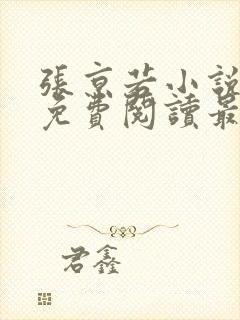 張京若小說
免費閱讀最
君鑫